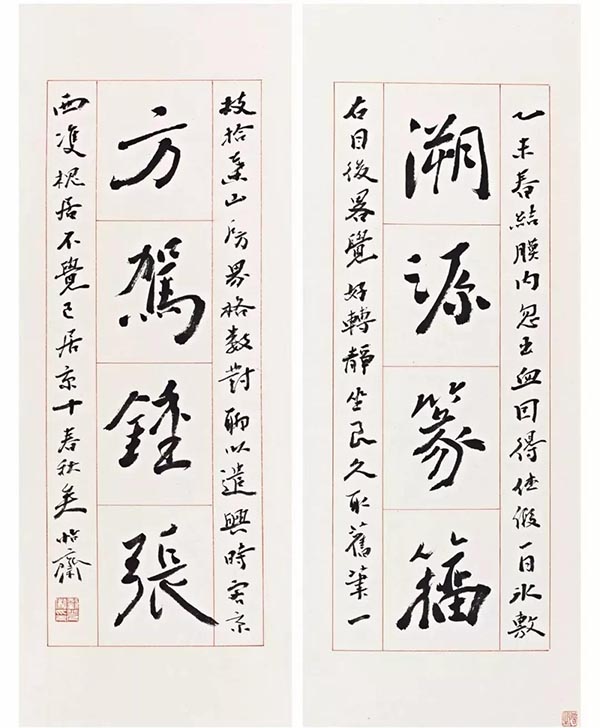 乙未春結膜内忽出血因得休假一日冰敷
溯源篆籀
右目後畧覺好轉靜坐良久取舊筆一
枝拾山房界格數對聊以遣興時客京
方駕鍾張
西雙槐居不覺已居京十春秋矣 齋